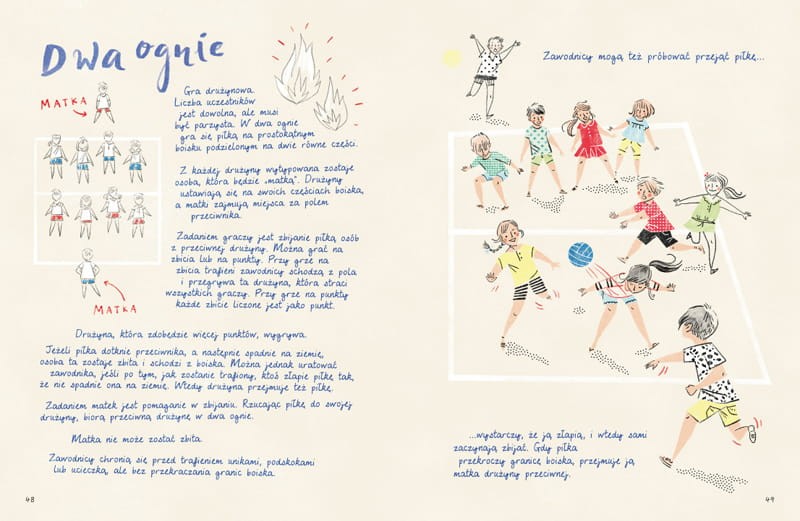 Dwa ognie
MATKA
Gra drużynowa.
Liczba uczestników
jest dowolna, ale musi
być parzysta. W dwa ognie
gra się piłką na prostokątnym
boisku podzielonym na dwie równe części.
Z każdej drużyny wytypowana zostaje
osoba, która będzie „matką”. Drużyny
ustawiają się na swoich częściach boiska,
a matki zajmują miejsca za polem
przeciwnika.
Zadaniem graczy jest zbijanie piłką osób
z przeciwnej drużyny. Można grać na
zbicia lub na punkty. Przy grze na
zbicia trafieni zawodnicy schodzą z pola
i przegrywa ta drużyna, która straci
wszystkich graczy. Przy grze na punkty
każde zbicie liczone jest jako punkt.
MATKA
Drużyna, która zdobędzie więcej punktów, wygrywa.
Jeżeli piłka dotknie przeciwnika, a następnie spadnie na ziemię,
osoba ta zostaje zbita i schodzi z boiska. Można jednak uratować
zawodnika, jeśli po tym, jak zostanie trafiony, ktoś złapie piłkę tak,
że nie spadnie ona na ziemię. Wtedy drużyna przejmuje też piłkę.
Zadaniem matek jest pomaganie w zbijaniu. Rzucając piłkę do swojej
drużyny, biorą przeciwną drużynę w dwa ognie.
Matka nie może zostać zbita.
Zawodnicy chronią się przed trafieniem unikami, podskokami
lub ucieczką, ale bez przekraczania granic boiska.
48
Zawodnicy mogą też próbować przejąć piłkę...
...wystarczy, że ją złapią, i wtedy sami
zaczynają zbijać. Gdy piłka
przekroczy granicę boiska, przejmuje ją
matka drużyny przeciwnej.
49